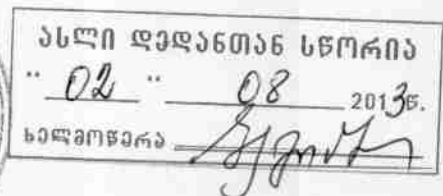 ასლი დედანთან სწორია
" 02 " 08 2013წ.
ხელმოწერა